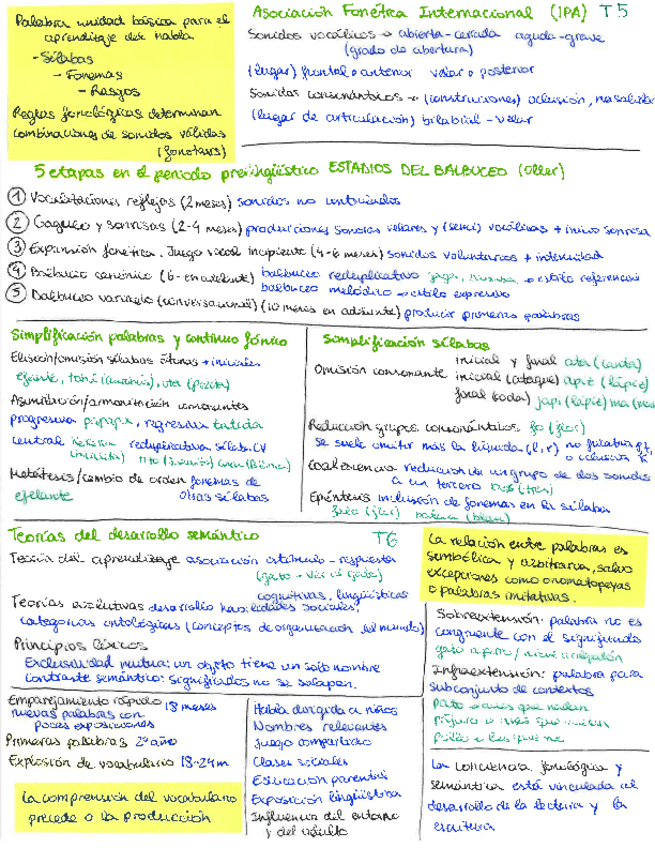 Palabra unidad básica para el
aprendizaje del habla
- Sílabas
- Fonemas
- Rasgos
Reglas fonológicas determinan
combinaciones de sonidos válidas
Asociación Fonética Internacional (IPA) T5
Sonidos vocálicos → abierta-cerrada aguda-grave
(grado de abertura)
(lugar) frontal o anterior velar o posterior
Sonidos consonánticos → (constricciones) oclusión, nasalidad
(lugar de articulación) bilabial - velar
5 etapas en el periodo prelingüístico ESTADIOS DEL BALBUCEO (Oller)
① Vocalizaciones reflejas (2 meses) sonidos no controlados
② Gagueo y sonrisas (2-4 meses) producciones sonoras velares y (semi) vocálicas + inicio sonrisa
③ Expansión fonética. Juego vocal incipiente (4-6 meses) sonidos voluntarios + intensidad
④ Balbuceo canónico (6- en adelante) balbuceo reduplicativo → estilo referencial
balbuceo melódico → estilo expresivo
⑤ Balbuceo variado (conversacional) (10 meses en adelante) producir primeras palabras
Simplificación palabras y continuo fónico
Elisión/omisión sílabas átonas + iniciales
efante,
Asimilación/armonización consonantes
progresiva regresiva tatuta
central reduplicativa sílaba CV
Metátesis/cambio de orden fonemas de
efelante otras sílabas
Simplificación sílabas
Omisión consonante
inicial y final ata (canta)
inicial (ataque) apit (lápiz)
final (coda) japi (lápiz)
Reducción grupos consonánticos fo (flor)
se suele omitir más la líquida (l, r)
Coalescencia reducción de un grupo de dos sonidos
a un tercero
Epéntesis inclusión de fonemas en la sílaba
Teorías del desarrollo semántico T6
Teoría del aprendizaje asociación estímulo - respuesta
Teorías evolutivas desarrollo habilidades sociales,
cognitivas, lingüísticas
categorías ontológicas (conceptos de organización del mundo)
Principios léxicos
Exclusividad mutua: un objeto tiene un solo nombre
Contraste semántico: significados no se solapan.
La relación entre palabras es
simbólica y arbitraria, salvo
excepciones como onomatopeyas
o palabras imitativas.
Sobreextensión: palabra no es
congruente con el significado
Infraextensión: palabra para
subconjunto de contextos
Emparejamiento rápido 18 meses
nuevas palabras con
pocas exposiciones
Primeras palabras 2º año
Explosión de vocabulario 18-24m
La comprensión del vocabulario
precede a la producción
Habla dirigida a niños
Nombres relevantes
Juego compartido
Clases sociales
Educación parental
Exposición lingüística
Influencia del entorno
y del adulto
La conciencia fonológica y
semántica está vinculada al
desarrollo de la lectura y la
escritura